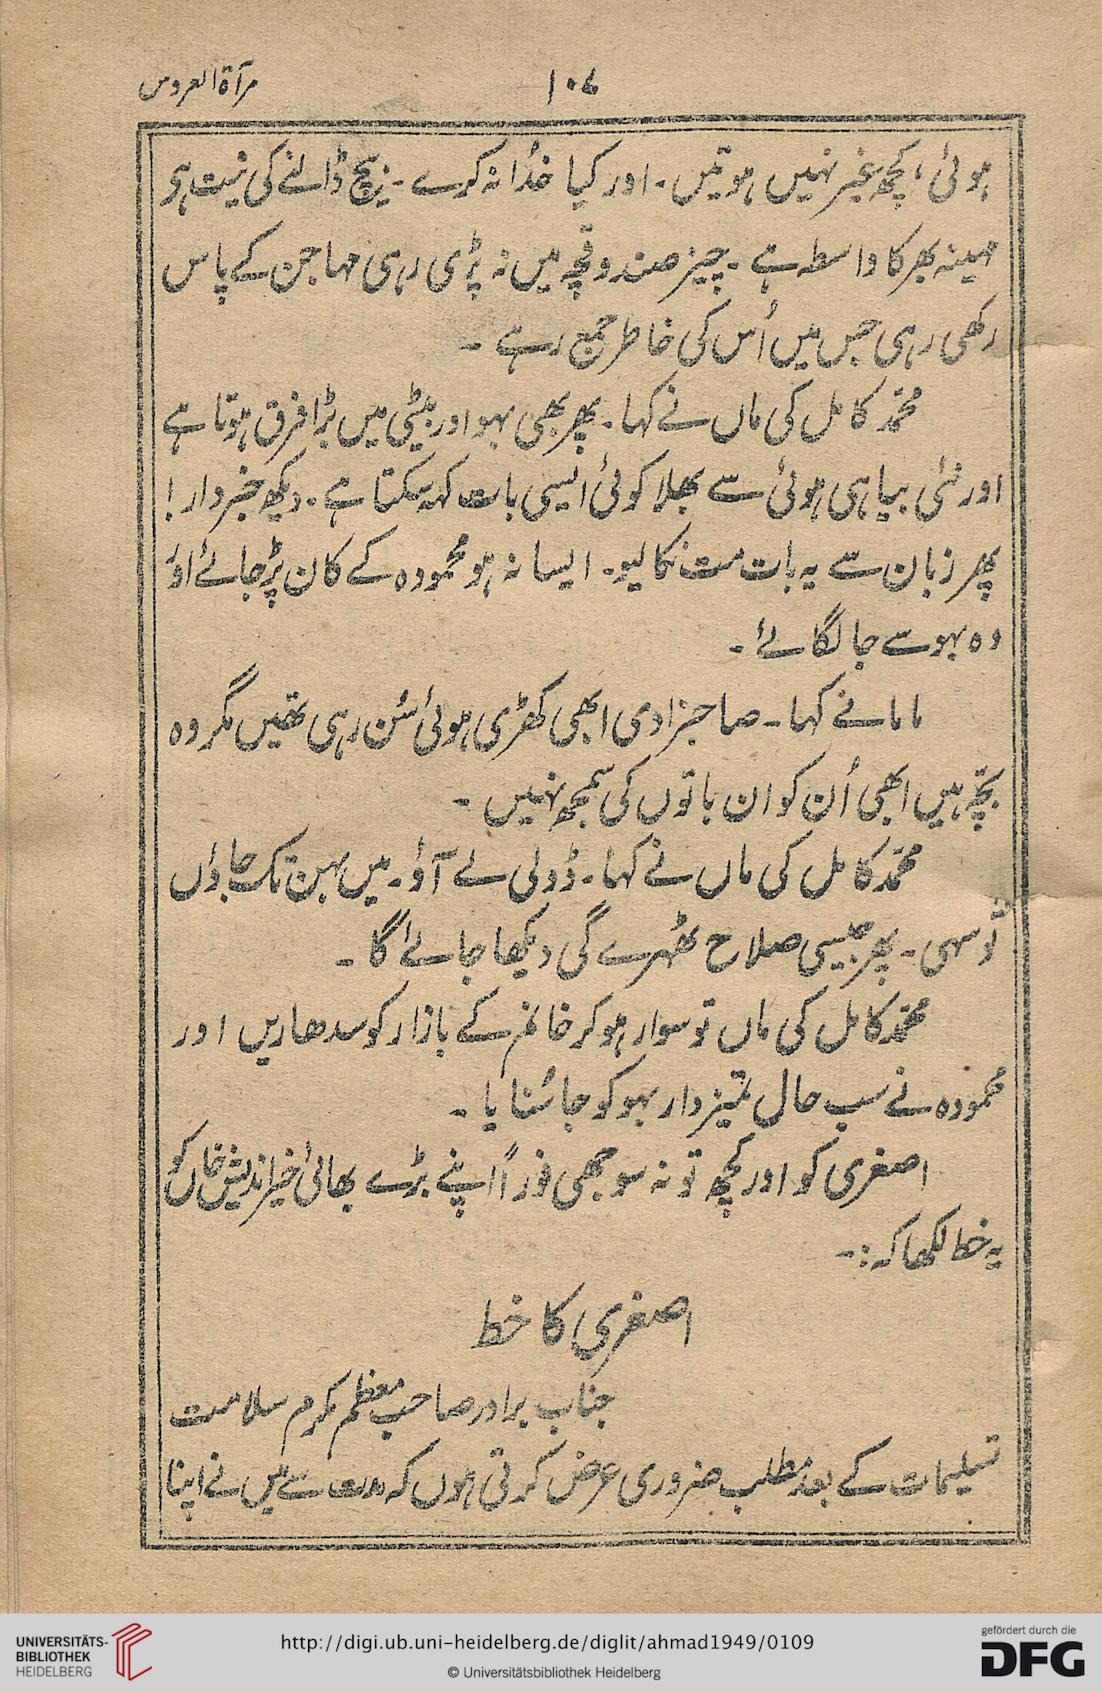 مرآۃ العروس
۱۰۷
ہوئی، کچھ غیر نہیں ہوتیں۔ اور کیا خُدا نہ کرے۔ بیچ ڈالنے کی نیت ہے
مہینہ بھر کا واسطہ ہے۔ چیز صندوقچہ میں نہ پڑی رہی مہاجن کے پاس
رکھی رہی جس میں اُس کی خاطر جمع رہے۔
محمّد کامل کی ماں نے کہا۔ پھر بھی بہو اور بیٹی میں بڑا فرق ہوتا ہے
اور نئی بیاہی ہوئی سے بھلا کوئی ایسی بات کہہ سکتا ہے۔ دیکھ خبردار!
پھر زبان سے یہ بات مت نکالیو۔ ایسا نہ ہو محمودہ کے کان پڑ جائے اور
وہ بہو سے جا لگائے۔
ماما نے کہا۔ صاحبزادی ابھی کھڑی ہوئی سُن رہی تھیں مگر وہ
بچّہ ہیں ابھی اُن کو ان باتوں کی سمجھ نہیں۔
محمّد کامل کی ماں نے کہا۔ ڈولی لے آؤ۔ میں بہن تک جاؤں
تو سہی۔ پھر جیسی صلاح ٹھہرے گی دیکھا جائے گا۔
محمّد کامل کی ماں تو سوار ہو کر خانم کے بازار کو سدھاریں اور
محمودہ نے سب حال تمیزدار بہو کو جا سُنایا۔
اصغری کو اور کچھ تو نہ سوجھی فوراً اپنے بڑے بھائی خیر اندیش خاں کو
یہ خط لکھا کہ:۔
اصغری کا خط
جناب برادر صاحب معظم مکرم سلامت
تسلیمات کے بعد مطلب ضروری عرض کرتی ہوں کہ مدت سے میں نے اپنا
UNIVERSITÄTS-
BIBLIOTHEK
HEIDELBERG
http://digi.ub.uni-heidelberg.de/diglit/ahmad1949/0109
© Universitätsbibliothek Heidelberg
gefördert durch die
DFG